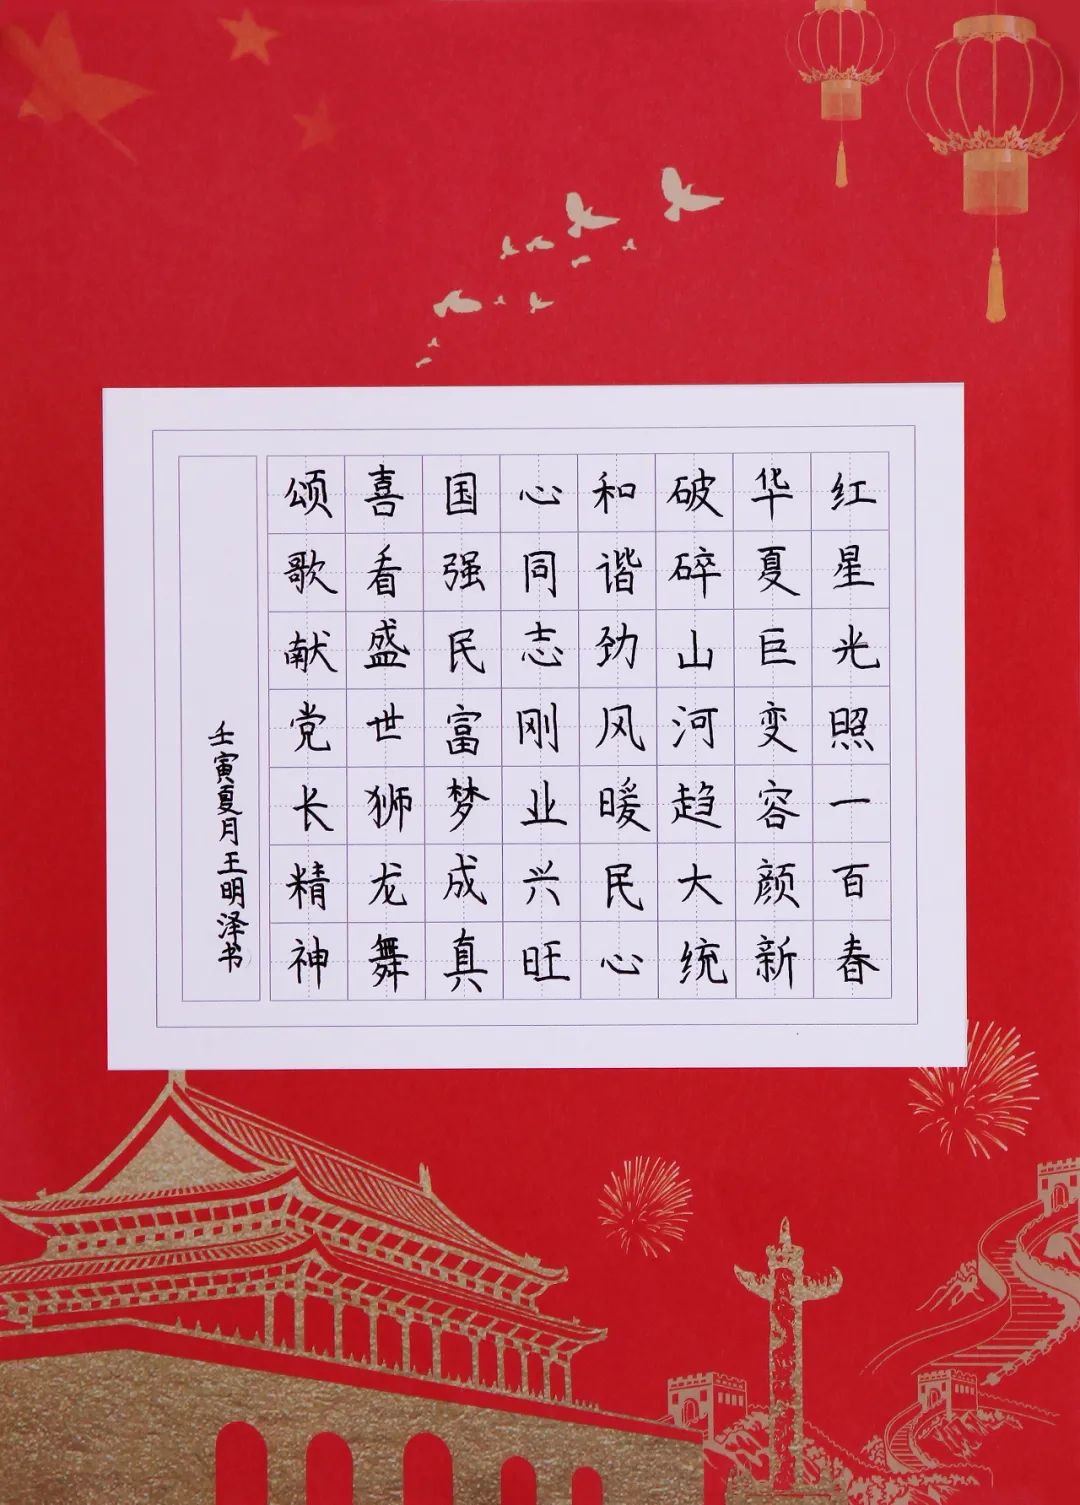 红星光照一百春
华夏巨变容颜新
破碎山河趋大统
和谐劲风暖民心
心同志刚业兴旺
国强民富梦成真
喜看盛世狮龙舞
颂歌献党长精神
壬寅夏月王明泽书